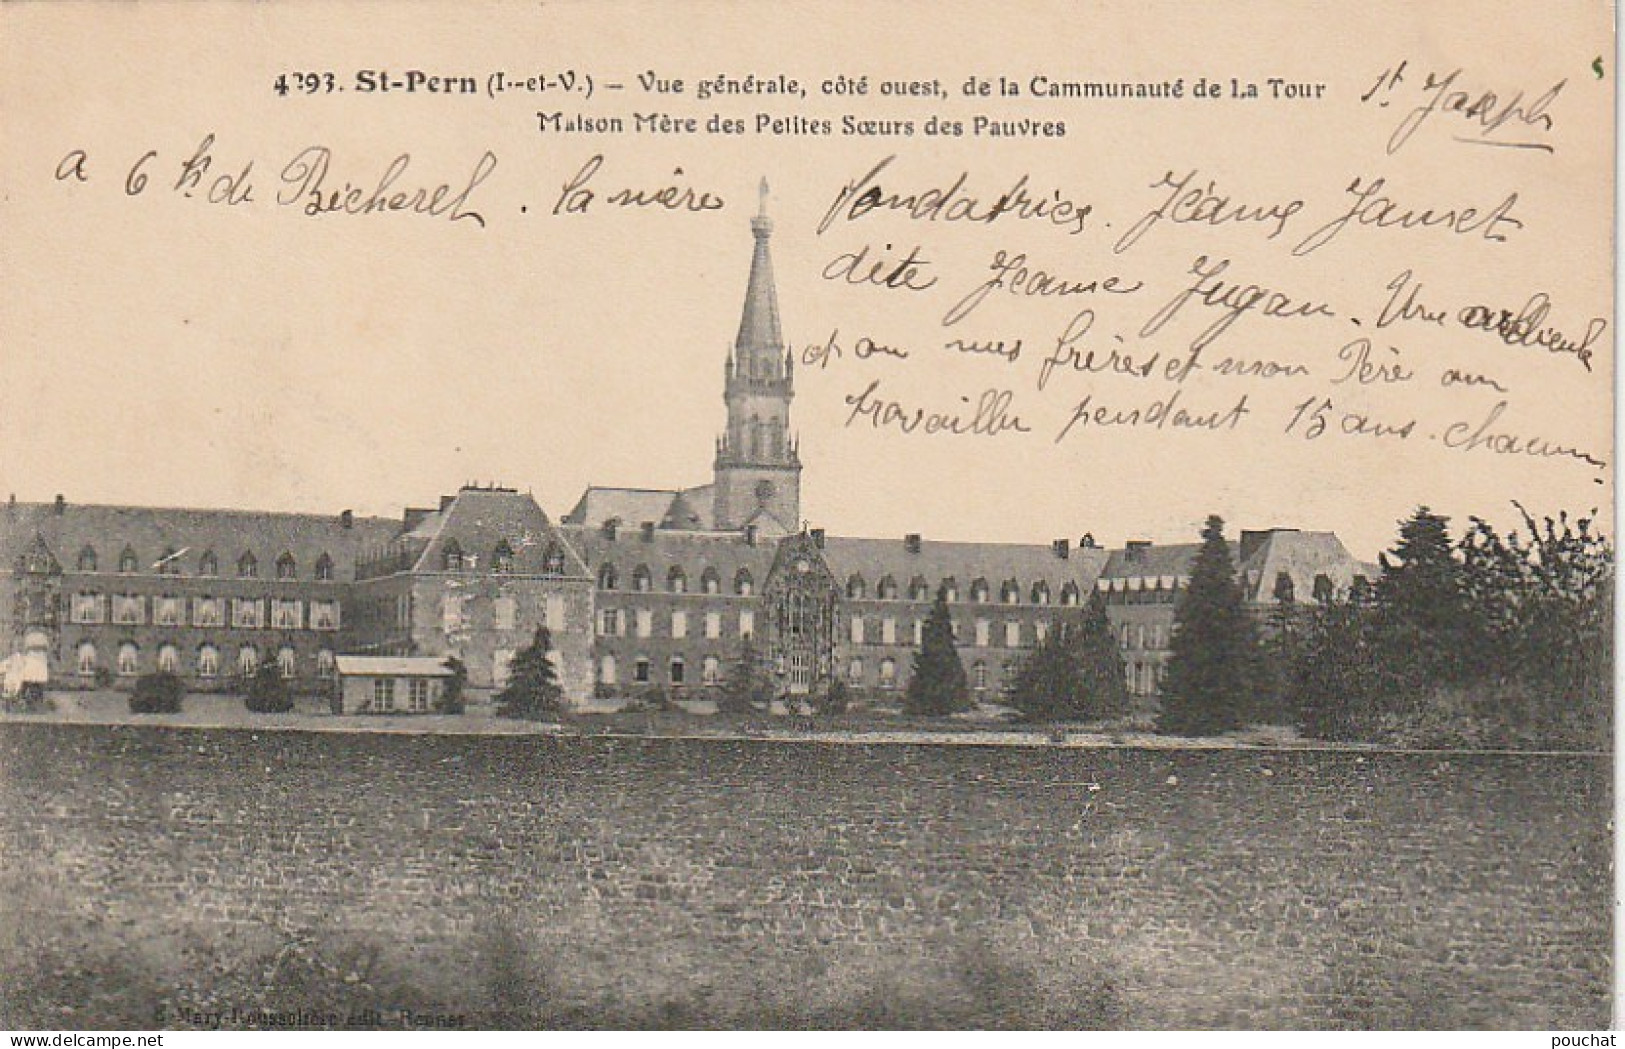 4293. St-Pern (I.-et-V.) — Vue générale, côté ouest, de la Cammunauté de La Tour
Maison Mère des Petites Sœurs des Pauvres
St Joseph
a 6 k. de Bécherel. la mère fondatrice. Jéanne Jamet
dite Jeanne Jugan. Une
et ou mes frères et mon Père on
travailler pendant 15 ans. chacun
E. Mary-Rousselière édit. Rennes
pouchat